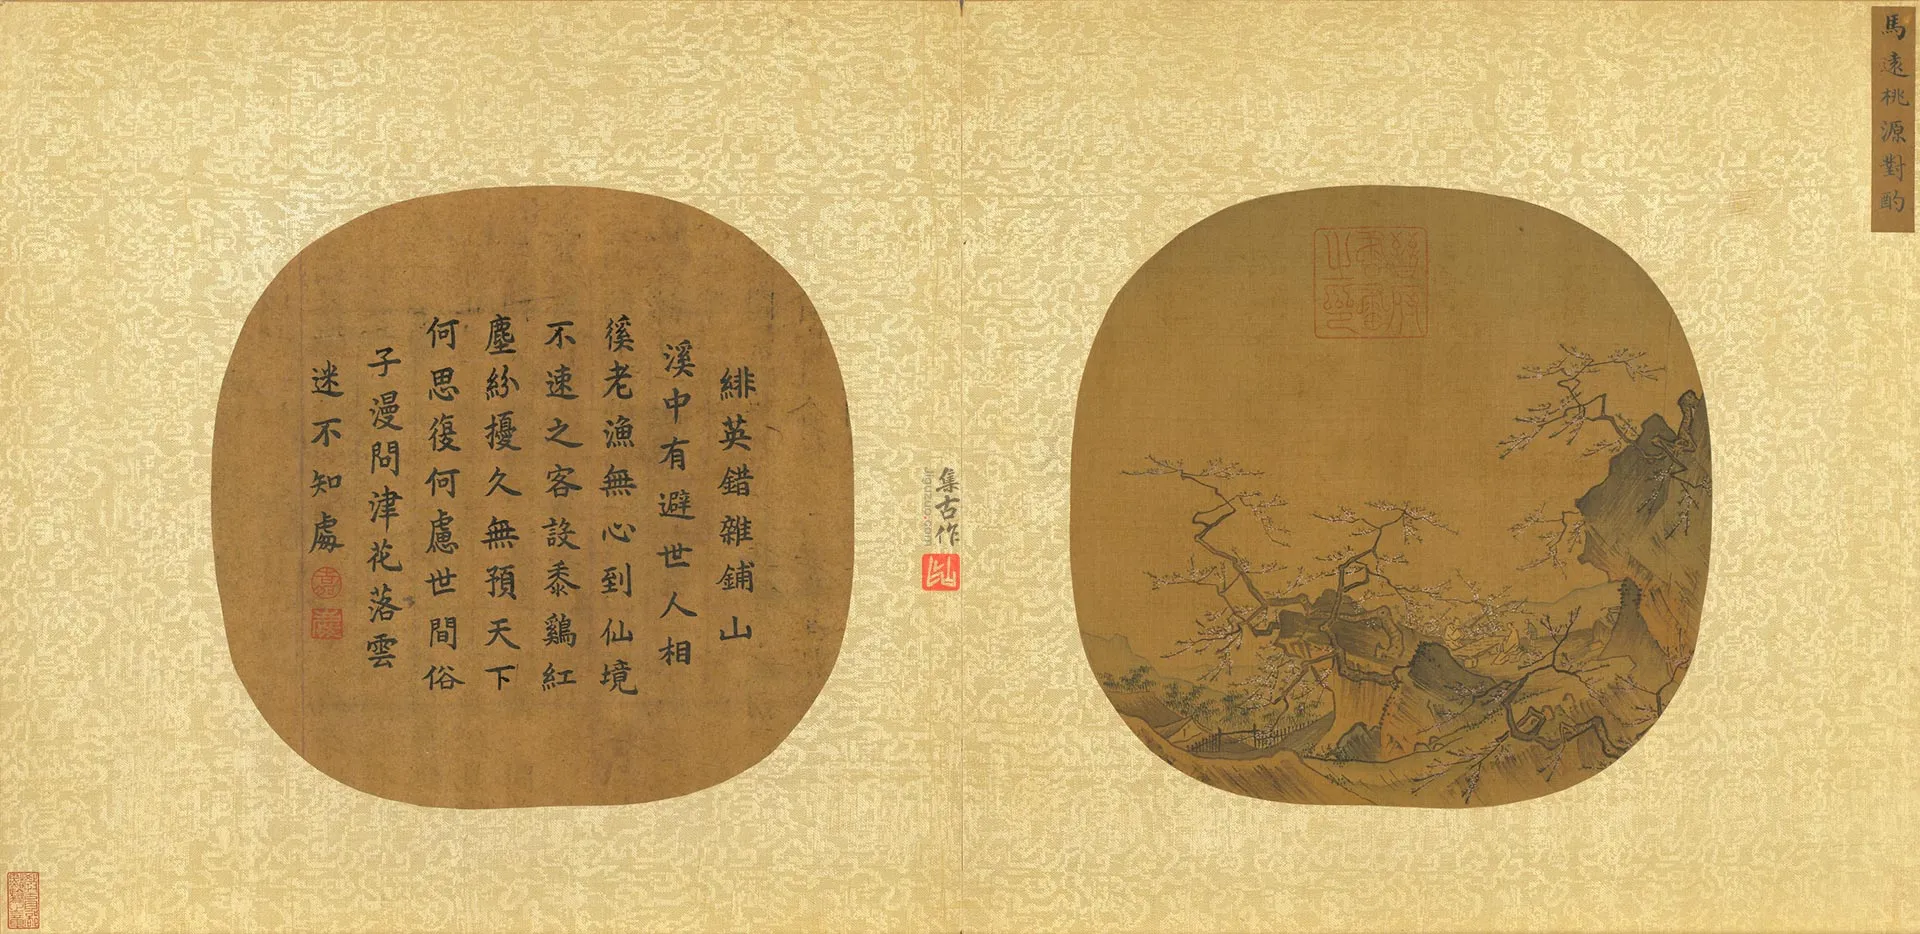 馬遠桃源對酌
晉府
書畫
之印
集古作
jiguzuo.com
緋英錯雜鋪山
溪中有避世人相
徯老漁無心到仙境
不速之客設黍鷄紅
塵紛擾久無預天下
何思復何慮世間俗
子漫問津花落雲
迷不知處